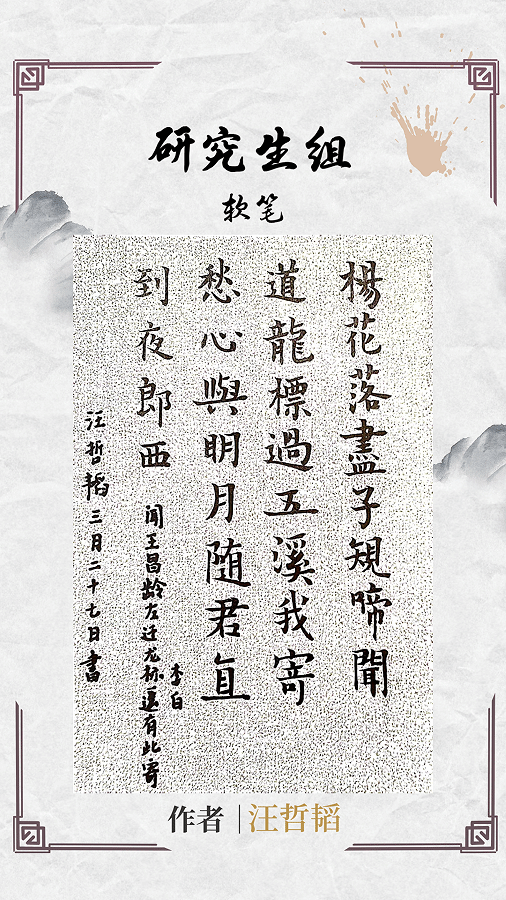 研究生组
软笔
楊花落盡子規啼聞
道龍標過五溪我寄
愁心與明月随君直
到夜郎西
闻王昌龄左迁龙标遥有此寄
李白
汪哲韬三月二十七日書
作者 | 汪哲韬